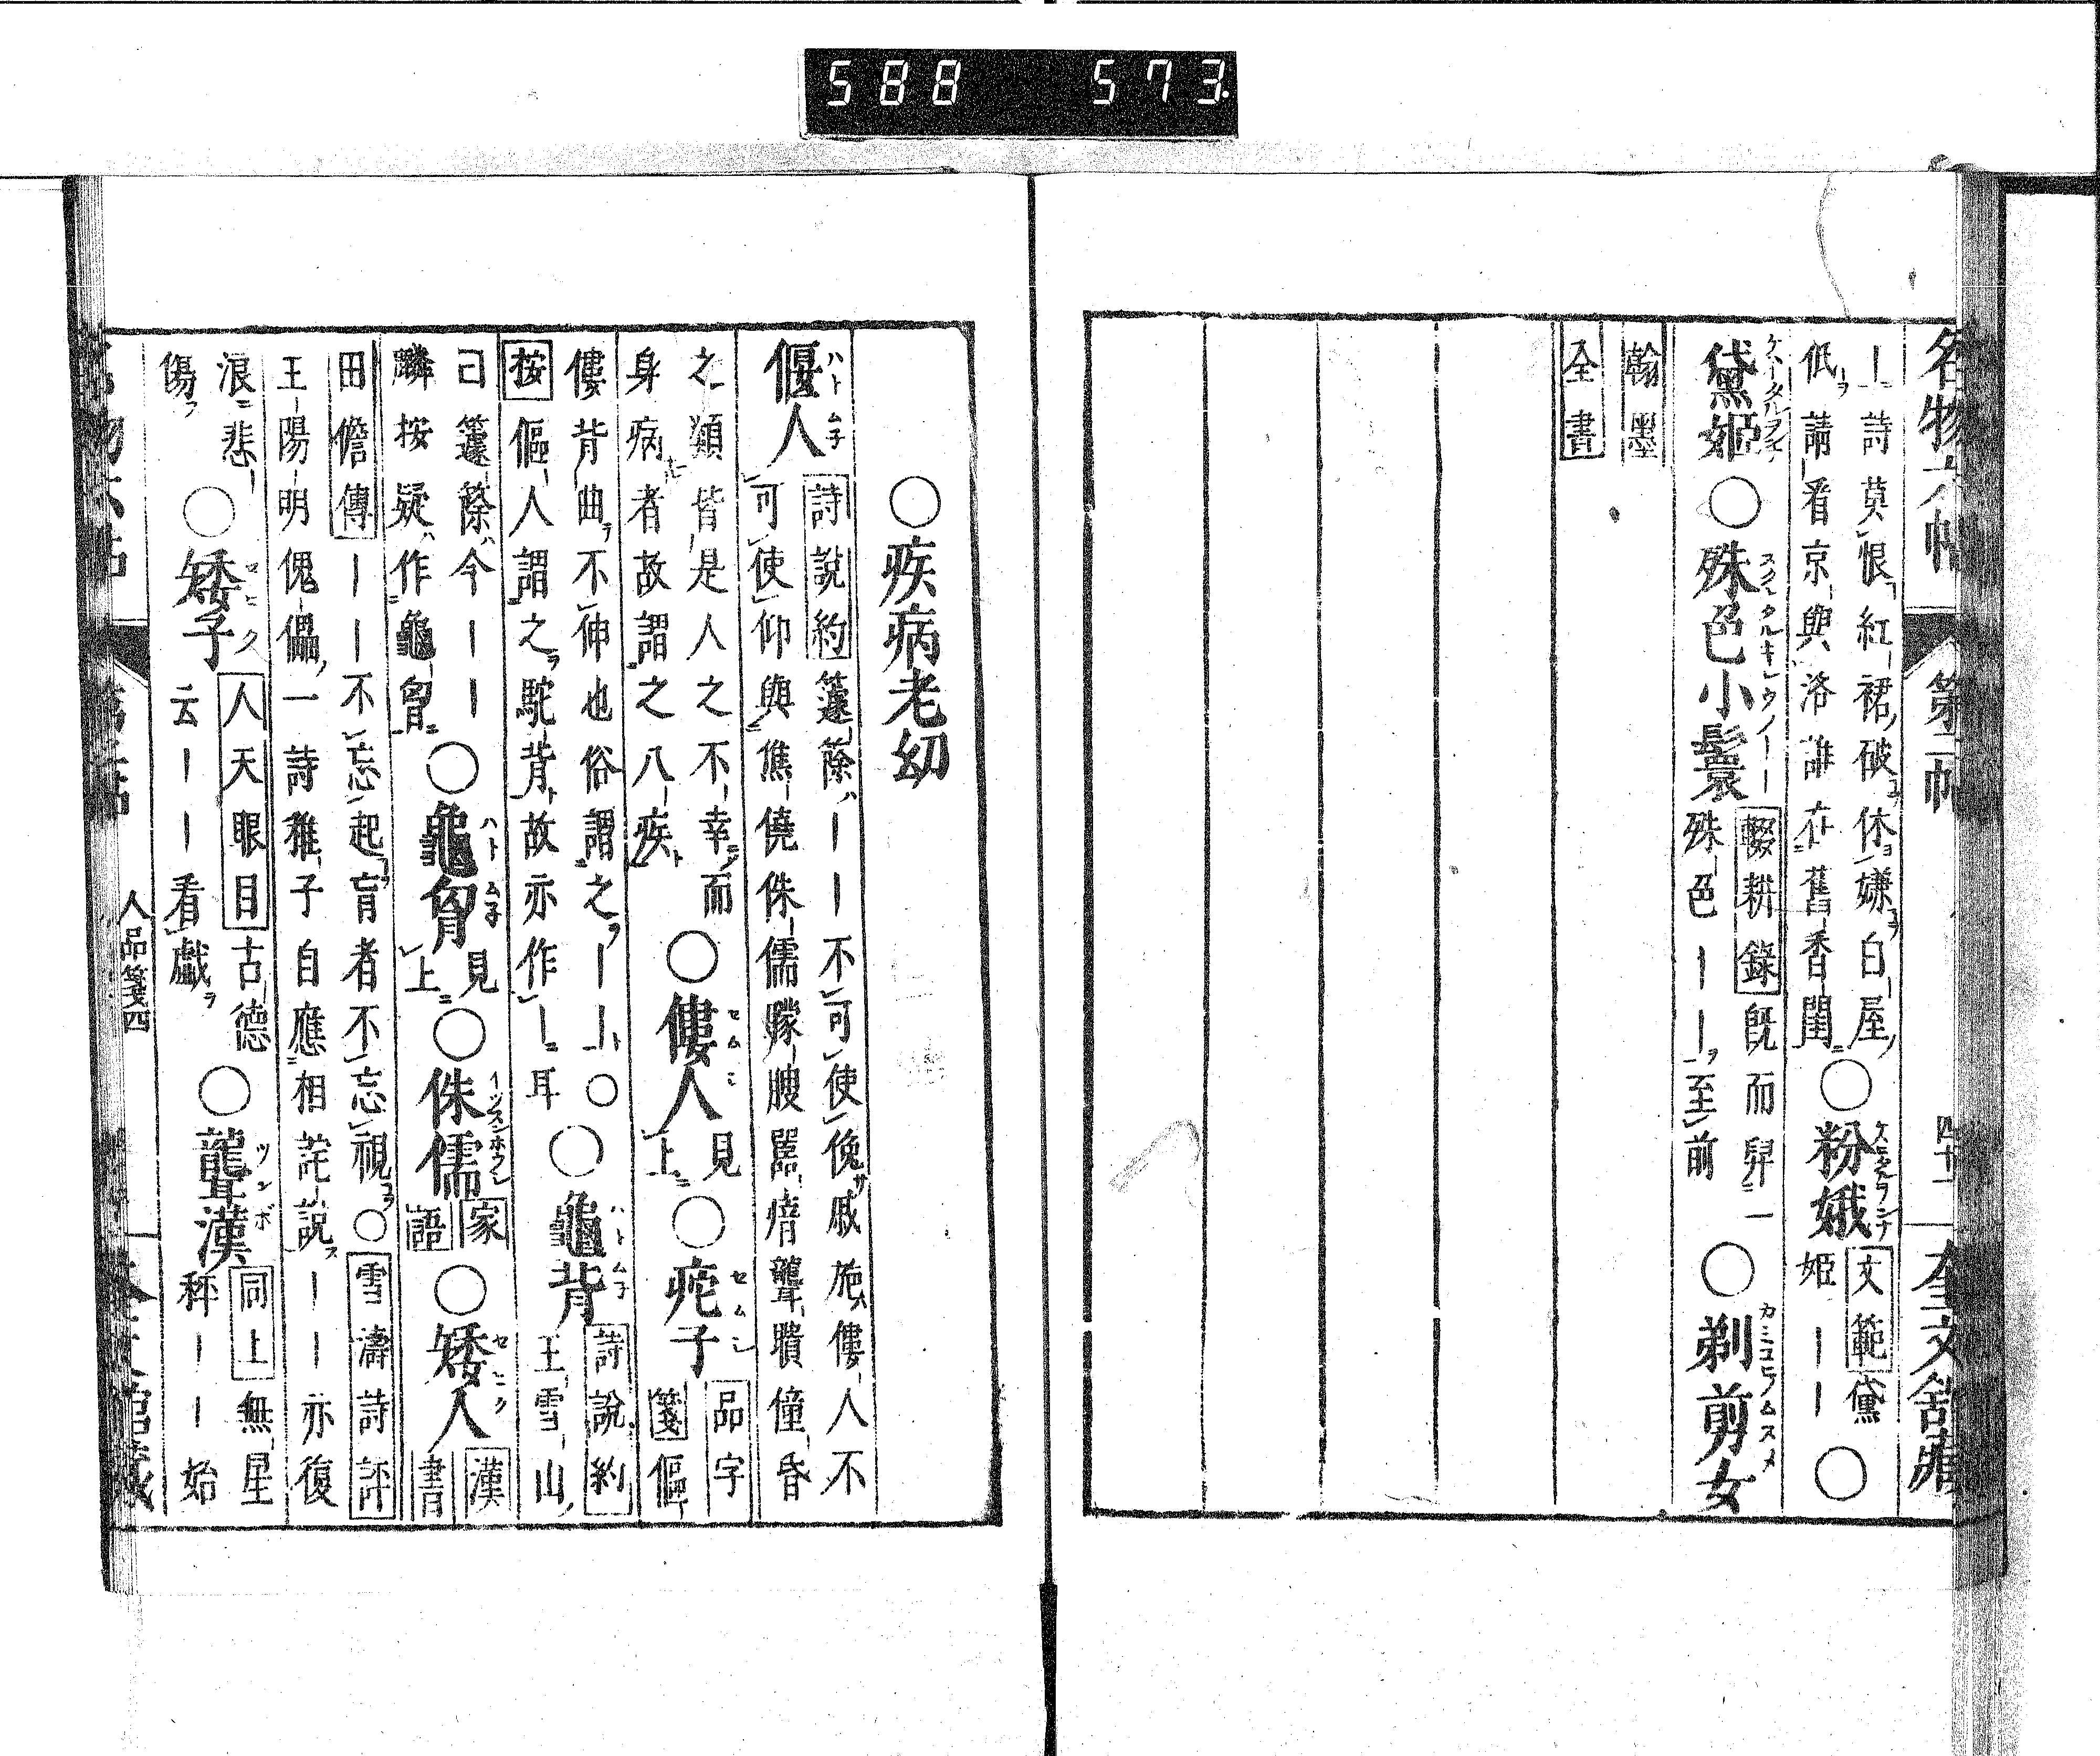 588 573.
名物六帖 第二帖 四十一 奎文館藏
｜詩莫恨紅裙破休嫌白屋
低請看京與洛誰在舊香閨
○粉娥
文範黛
姬｜｜
○
黛姬○殊色小鬟
輟耕錄既而舁一
殊色｜｜至前
○剃剪女
翰墨
全書
○疾病老幼
偃人
詩說約籧篨｜｜不可使俛戚施僂人不
可使仰與僬僥侏儒矇瞍嚚瘖聾聵僮昏
之類皆是人之不幸而
身病者故謂之八疾
○僂人
見
上
○子
品字
箋傴
僂背曲不伸也俗謂之｜｜○
按傴人謂之駝背故亦作｜耳
○龜背
詩說約
王雪山
曰籧篨今｜｜
麟按疑作龜胷
○龜胷
見
上
○侏儒
家
語
○矮人
漢
書
田儋傳｜｜不忘起盲者不忘視○雪濤詩評
王陽明傀儡一詩稚子自應相詫說｜｜亦復
浪悲
傷
○矮子
人天眼目古德
云｜｜看戲
○聾漢
同上無星
秤｜｜始
人品箋四